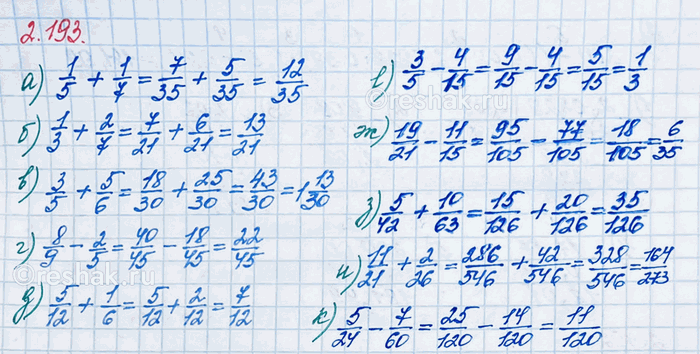 2.193.
а) 1/5 + 1/7 = 7/35 + 5/35 = 12/35
б) 1/3 + 2/7 = 7/21 + 6/21 = 13/21
в) 3/5 + 5/6 = 18/30 + 25/30 = 43/30 = 1 13/30
г) 8/9 - 2/5 = 40/45 - 18/45 = 22/45
д) 5/12 + 1/6 = 5/12 + 2/12 = 7/12
е) 3/5 - 4/15 = 9/15 - 4/15 = 5/15 = 1/3
ж) 19/21 - 11/15 = 95/105 - 77/105 = 18/105 = 6/35
з) 5/42 + 10/63 = 15/126 + 20/126 = 35/126
и) 11/21 + 2/26 = 286/546 + 42/546 = 328/546 = 164/273
к) 5/24 - 7/60 = 25/120 - 14/120 = 11/120